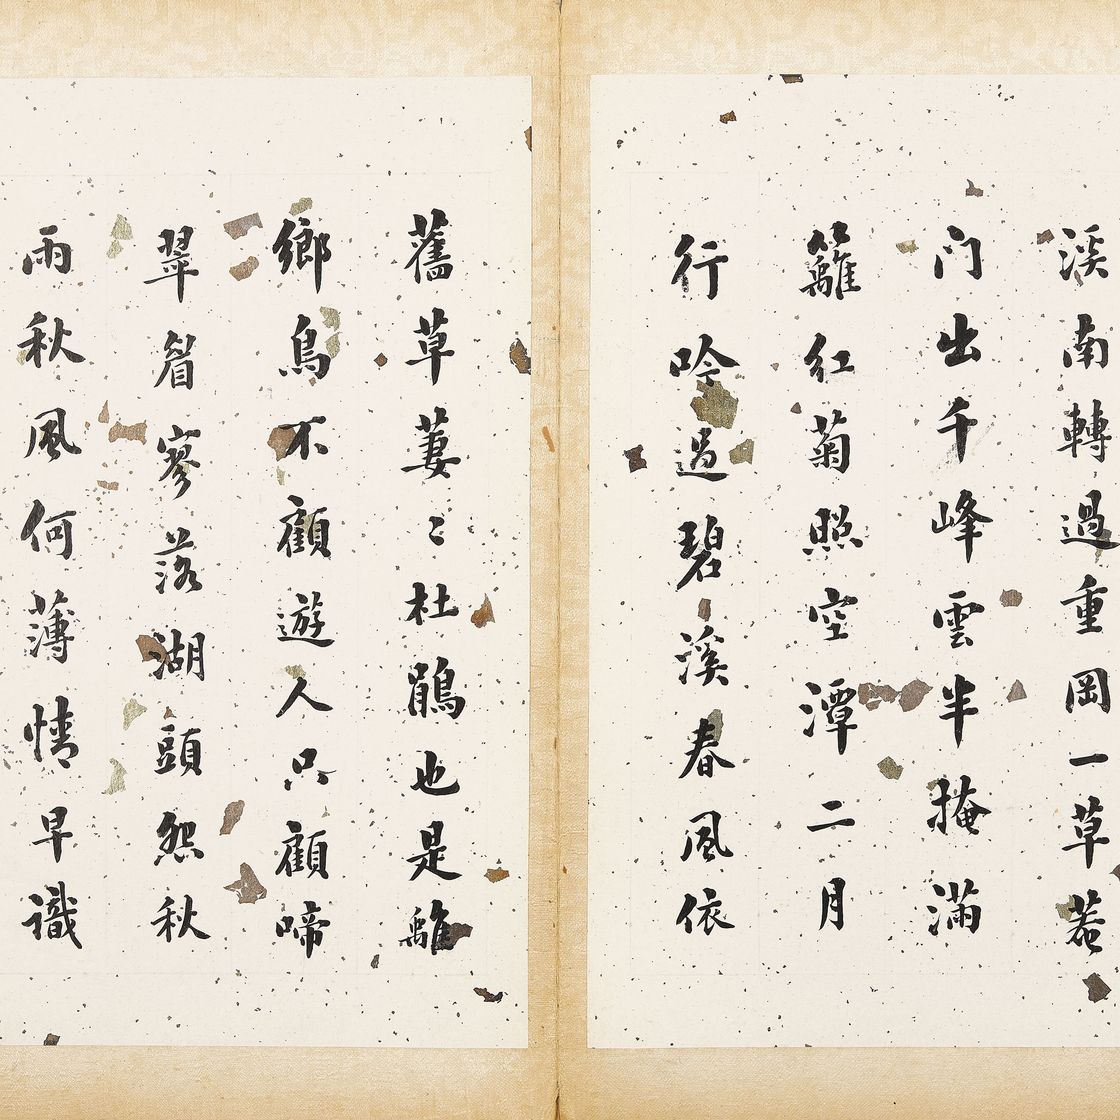 溪南轉過重岡一草菴
门出千峰雲半掩滿
籬紅菊照空潭二月
行吟過碧溪春风依
舊草萋〻杜鵑也是離
鄉鳥不顧遊人只顧啼
翠眉寥落湖頭怨秋
雨秋風何薄情早識